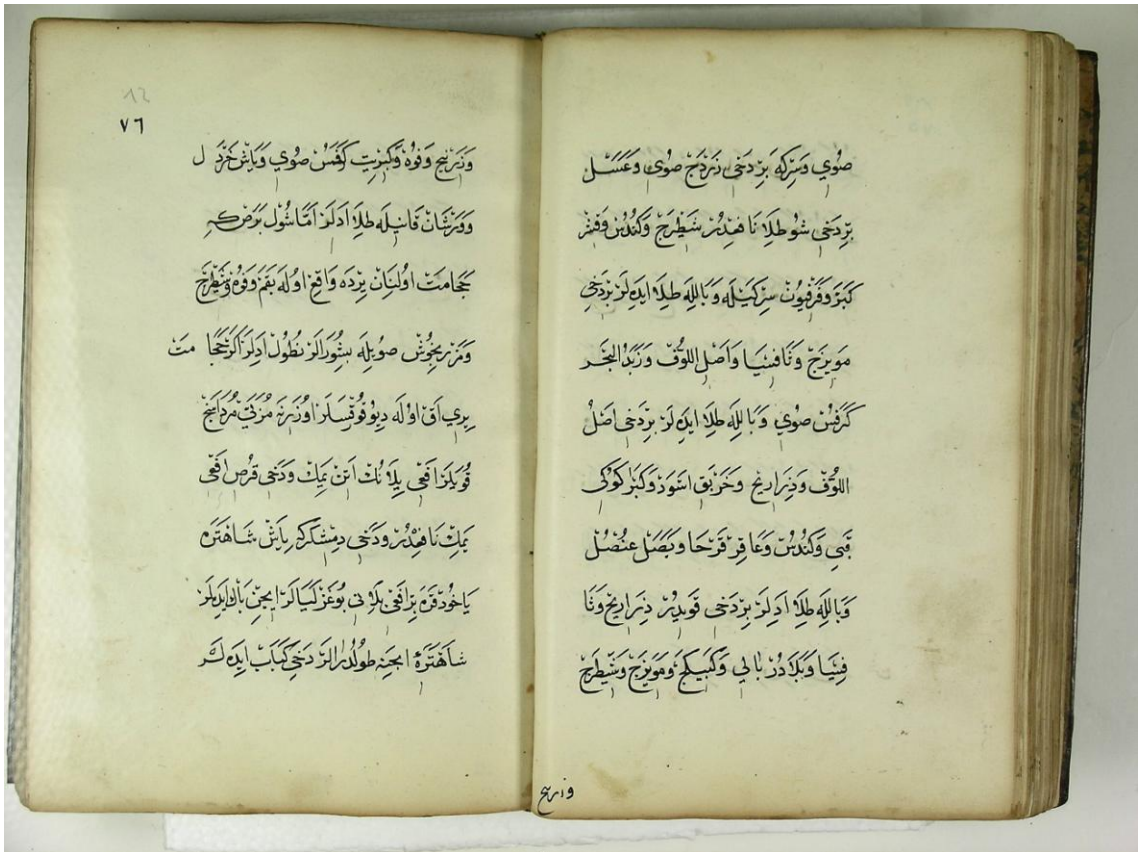 صُوي وَسِرْكَه بَرْ دَخِى نَزْدَجْ صُوى وَعَسَل
بِرْ دَخِى شُو طِلَا نَافِعْدُرْ شَيْطَرَجْ وَكُنْدُسْ وَقِشْرِ
كَبَرْ وَفَرْفِيُونْ سِرْكَيْلَه وَبَاللَه طِلَا ايدَلَرْ بِرْ دَخِى
مَوِيزَجْ وَثَافْسِيَا وَاَصْلِ اللُّوفْ وَزَبَدُ الْبَحْر
كَرَفْسْ صُوي وَبَاللَه طِلَا ايدَه لَرْ بِرْ دَخِى اَصْلُ
اللُّوفْ وَذَرَارِيحْ وَخَرْبَقِ اَسْوَدْ وَكَبَرْ كُوكِى
قَبِى وَكُنْدُسْ وَعَاقِرْ قَرْحَا وَبَصَلِ عُنْصُلْ
وَبَاللَه طِلَا اَدِلَرْ بِرْ دَخِى قَويدُرْ ذَرَارِيحْ وَثَا
فِسْيَا وَبَلَادُرْ بَالِي وَكَبِيكَجْ وَمَوِيزَجْ وَشَيْطَرَجْ
وزرنيخ
٧٦
وَزَرْنِيخْ وَفُوَّه وَكِبْرِيتْ كَرَفْسْ صُوي وَيَابِشْ خَرْدَل
وَوَرْشَانْ قَانِيلَه طِلَا اَدَلَرْ اَمَّا شُولْ بَرَصْ كِه
حَجَامَتْ اُولِنَانْ يِرْدَه وَاقِعْ اُولَه بَقَمْ وَفُوَّه وَشَيْطَرَجْ
وَمَرْزَنْجُوشْ صُويلَه بِشُورَالَرْ نُطُولْ اَدِلَرْ اَكَرْ حَجَامَتْ
يِرِي اَقْ اُولَه دِيُو قُورْقِسَلَرْ اُوزَرِنَه مُرَبَّى مُرْدَاسَنْج
قُويَلَرْ اَفْعِى يِلَانُكْ اَتِنْ يَمَكْ وَدَخِى قُرْصِ اَفْعِى
يَمَكْ نَافِعْدُرْ وَدَخِى دِمِشْلَرْكِه يَاشْ شَاهْتَرَه
يَاخُودْ قَرَه بِرْ اَفْعِى يِلَانِى بُوغَزْلَيَالَرْ اِيچِنْ پَاكْ ايدَلَرْ
شَاهْتَرَه اِيچِنَه طُولْدُرَالَرْ دَخِى كَبَابْ ايدَه لَر